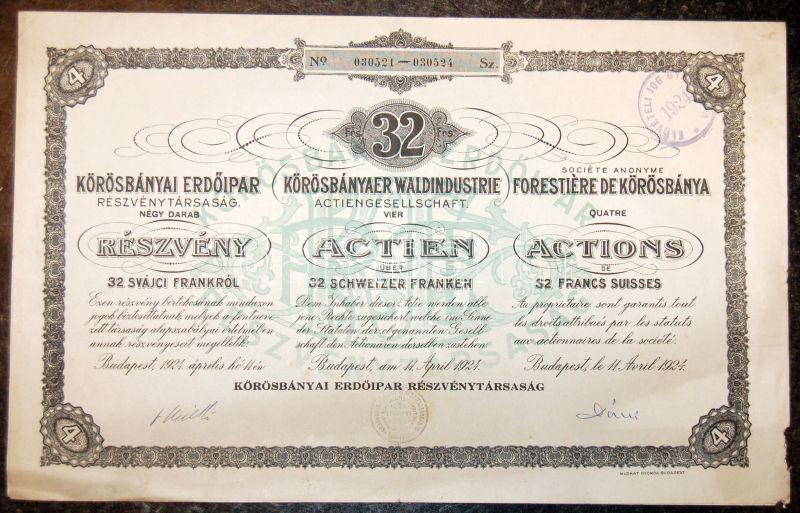 No 030521—030524 Sz.
4
4
1924
Frs 32 Frs
KŐRÖSBÁNYAI ERDŐIPAR
RÉSZVÉNYTÁRSASÁG.
NÉGY DARAB
RÉSZVÉNY
32 SVÁJCI FRANKRÓL
Ezen részvény birtokosának mindazon
jogok biztosíttatnak, melyek a fentneve-
zett társaság alapszabályai értelmében
annak részvényeseit megilletik.
Budapest, 1924. április hó 11-én
KŐRÖSBÁNYAER WALDINDUSTRIE
ACTIENGESELLSCHAFT.
VIER
ACTIEN
ÜBER
32 SCHWEIZER FRANKEN
Dem Inhaber dieser Actie werden alle
jene Rechte zugesichert welche im Sinne
der Statuten der obgenannten Gesell-
schaft den Actionären derselben zustehen.
Budapest, am 11 April 1924.
SOCIÉTÉ ANONYME
FORESTIÈRE DE KŐRÖSBÁNYA
QUATRE
ACTIONS
DE
32 FRANCS SUISSES
Au propriétaire sont garantis tout
les droits attribués par les statuts
aux actionnaires de la société.
Budapest, le 11 Avril 1924.
KŐRÖSBÁNYAI ERDŐIPAR RÉSZVÉNYTÁRSASÁG
4
4
NYOMDA BUDAPEST